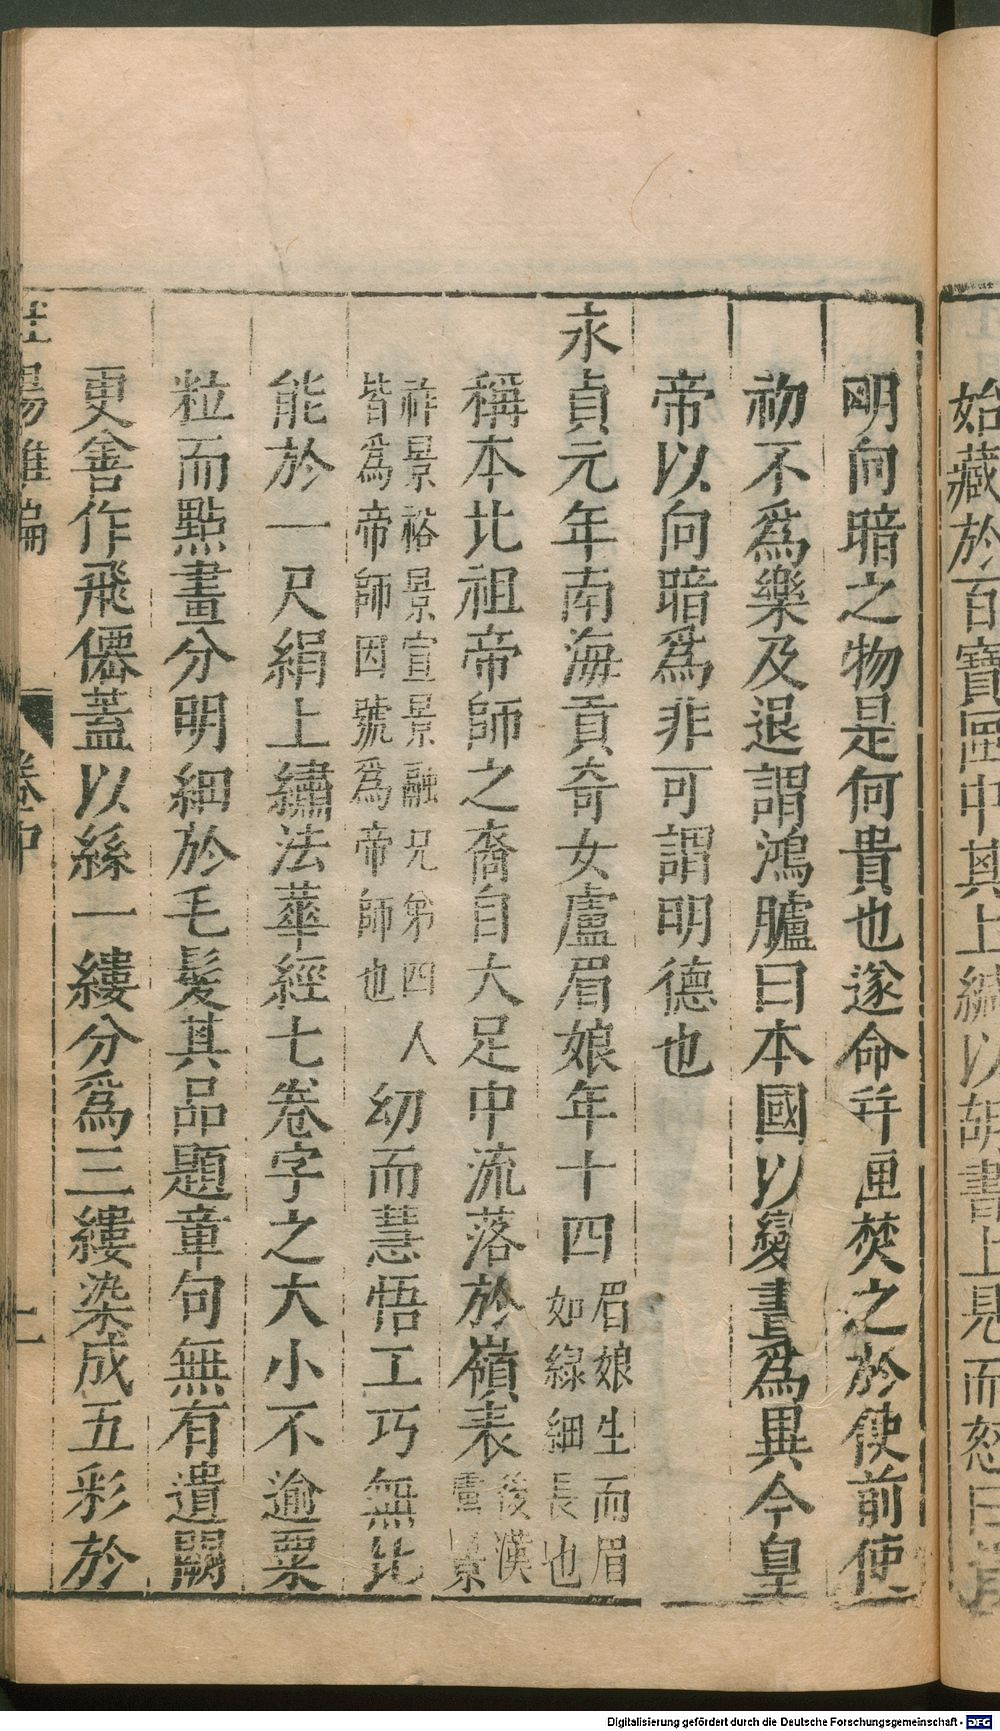 始藏於百寶匣中其上緘以胡書上惡而怒曰
明向暗之物是何貴也遂命并匣焚之於使前使
初不爲樂及退謂鴻臚曰本國以變晝爲異今皇
帝以向暗爲非可謂明德也
永貞元年南海貢奇女盧眉娘年十四眉娘生而眉如線細長也
稱本比祖帝師之裔自大足中流落於嶺表後漢盧景
祚景裕景宣景融兄弟四人皆爲帝師因號爲帝師也幼而慧悟工巧無比
能於一尺絹上繡法華經七卷字之大小不逾粟
粒而點畫分明細於毛髮其品題章句無有遺闕
更善作飛僊蓋以絲一縷分爲三縷染成五彩於
杜陽雜編 卷中 二
Digitalisierung gefördert durch die Deutsche Forschungsgemeinschaft - DFG